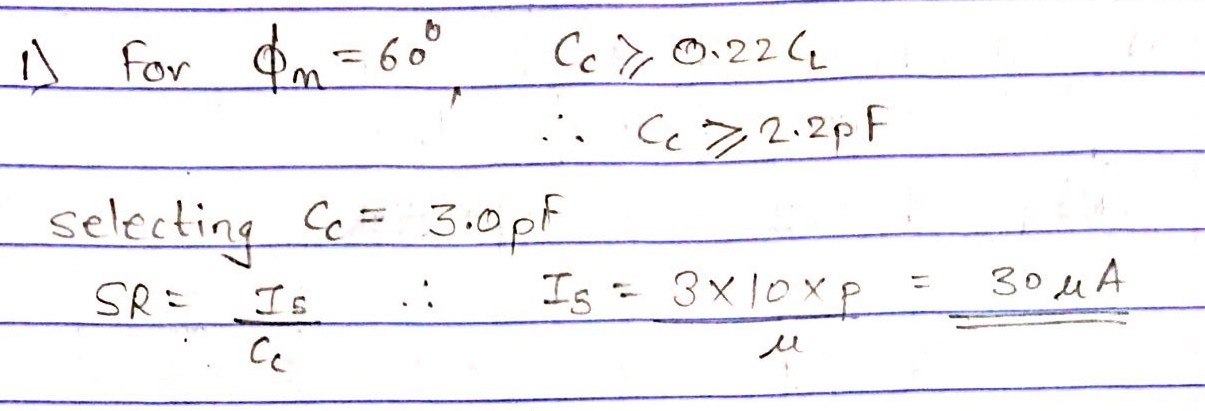 1) For ϕm = 60°, Cc ⩾ 0.22CL
∴ Cc ⩾ 2.2pF
selecting Cc = 3.0pF
SR = I5/Cc ∴ I5 = 3×10×p/μ = 30μA